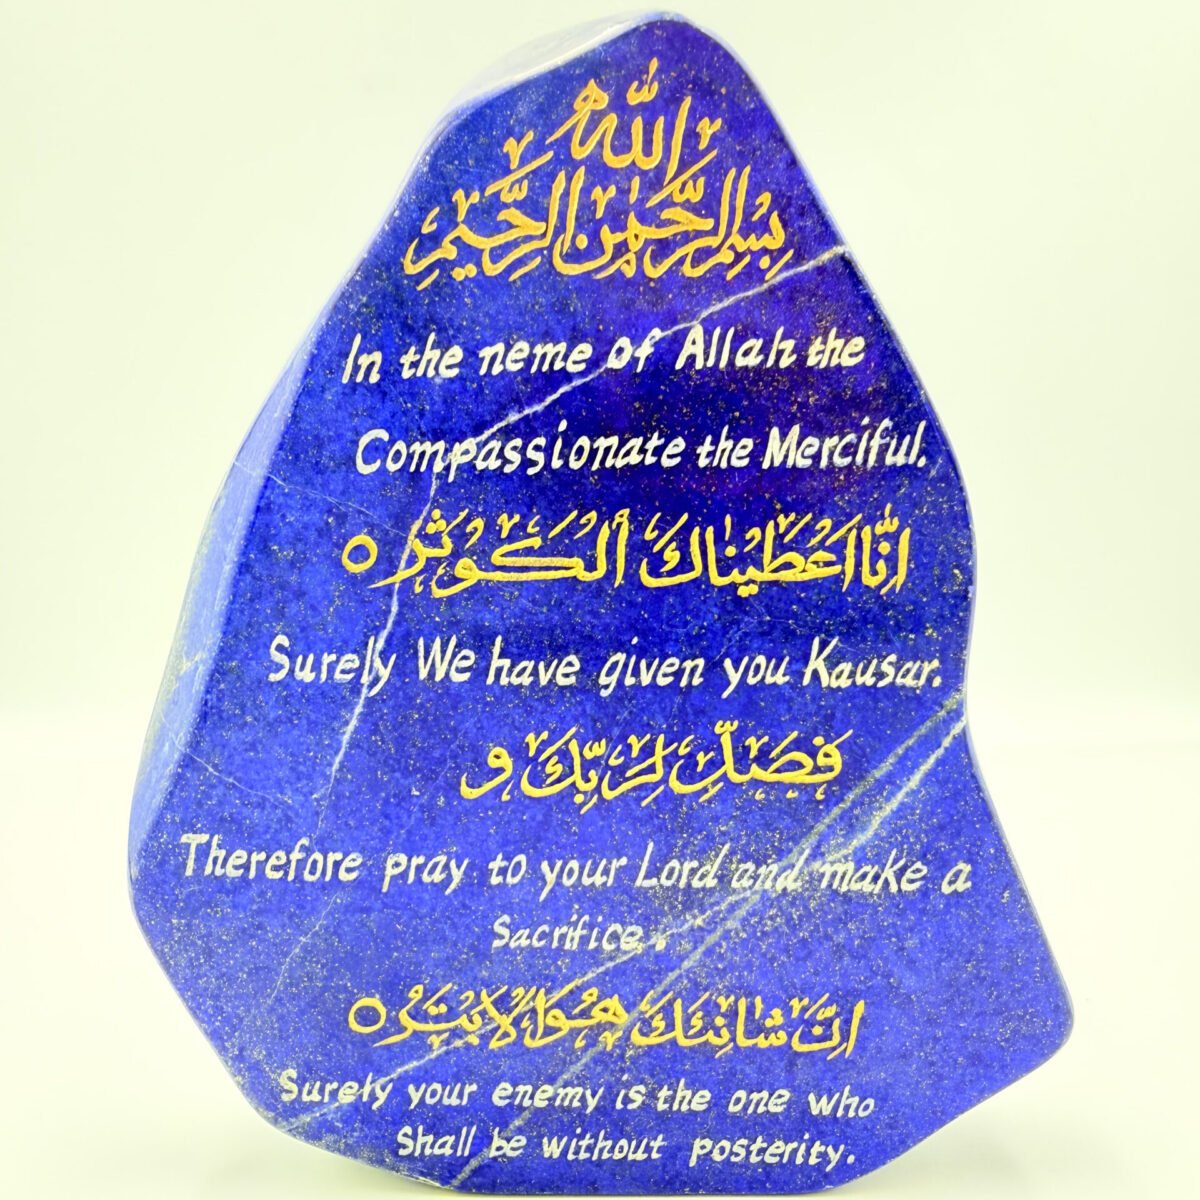 بِسْمِ اللّٰهِ الرَّحْمٰنِ الرَّحِيْمِ
In the neme of Allah the
Compassionate the Merciful.
اِنَّا اَعْطَيْنَاكَ الْكَوْثَرَ ○
Surely We have given you Kausar.
فَصَلِّ لِرَبِّكَ وَ
Therefore pray to your Lord and make a
Sacrifice.
اِنَّ شَانِئَكَ هُوَ الْاَبْتَرُ ○
Surely your enemy is the one who
Shall be without posterity.